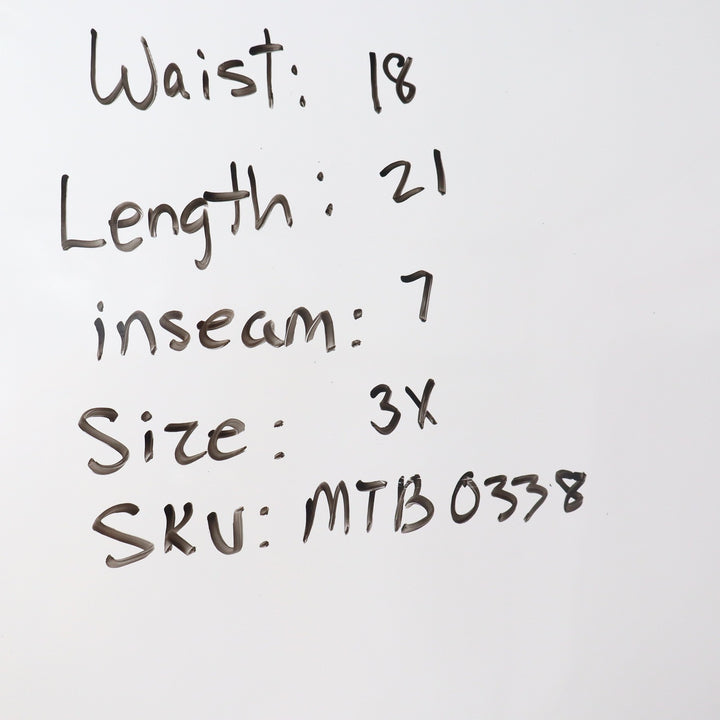 Waist: 18
Length: 21
inseam: 7
Size: 3X
SKU: MTB0338